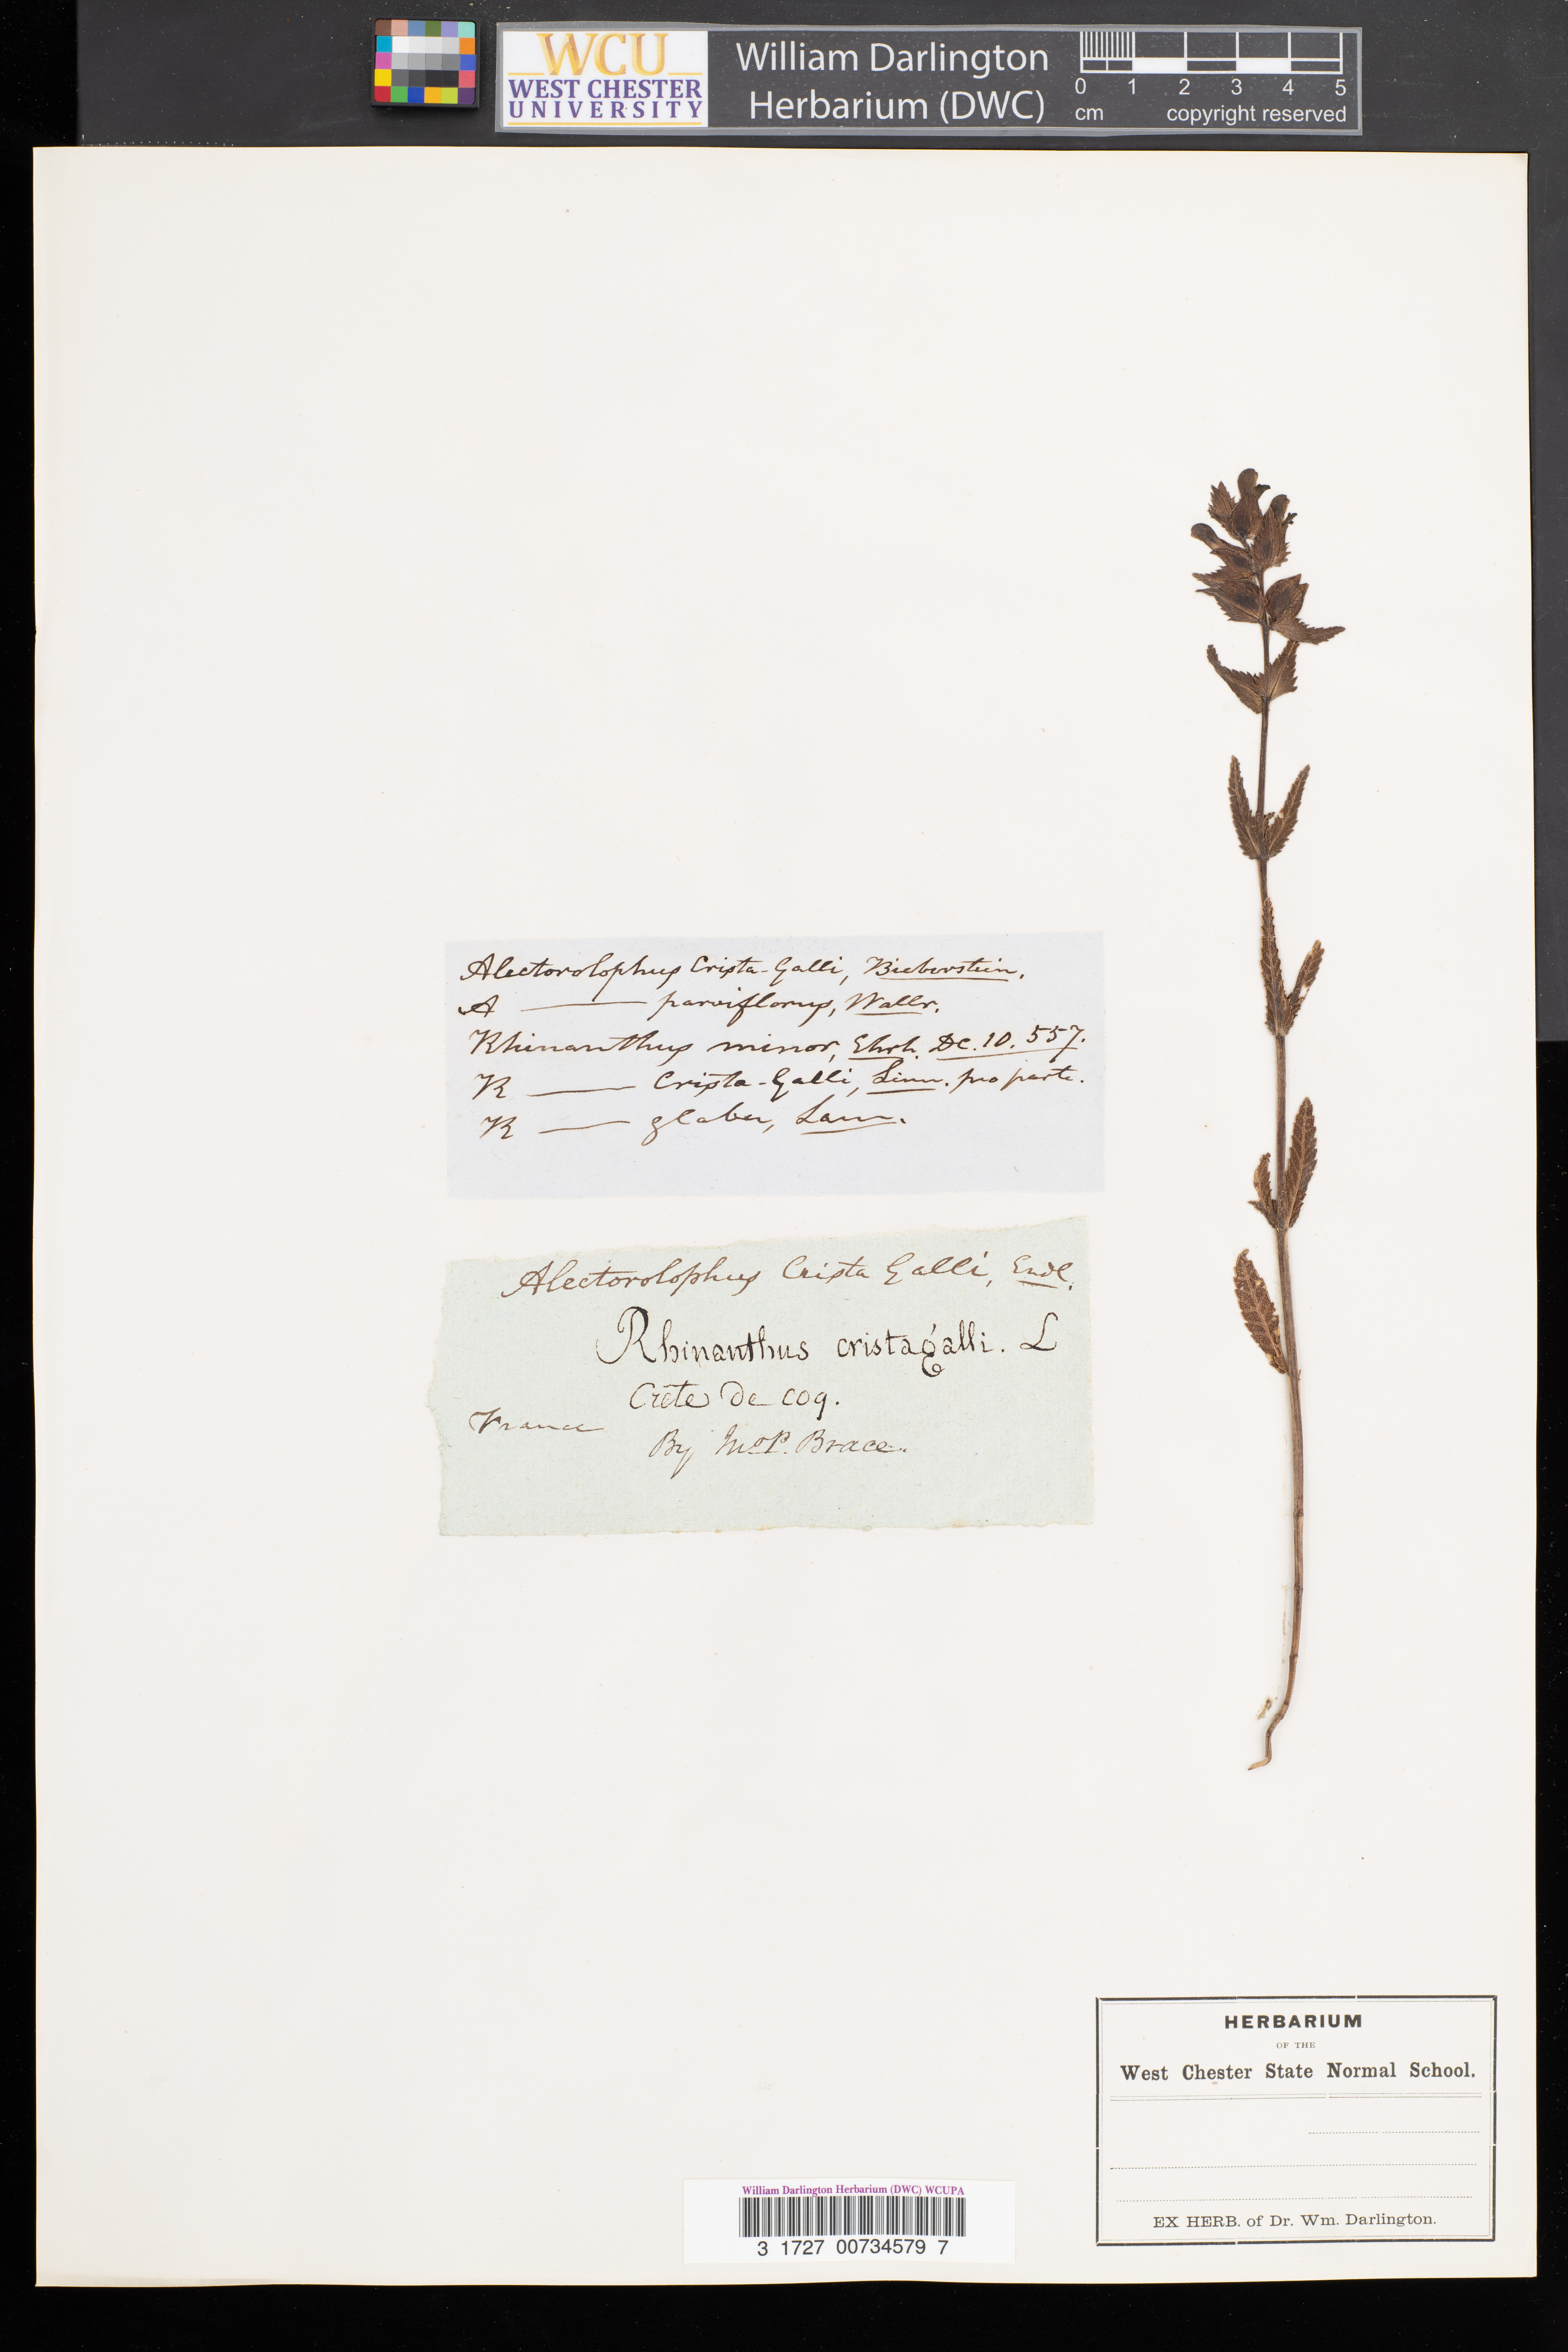 WCU
WEST CHESTER
UNIVERSITY
William Darlington
Herbarium (DWC)
0 1 2 3 4 5
cm copyright reserved
Alectorolophus Crista-Galli, Bieberstein.
A —— parviflorus, Wallr.
Rhinanthus minor, Ehrh. DC. 10. 557.
R —— Crista-Galli, Linn. pro parte.
R —— glaber, Lam.
Alectorolophus Crista Galli, Endl.
Rhinanthus cristagalli. L
Crête de coq.
France
By Jno P. Brace.
HERBARIUM
OF THE
West Chester State Normal School.
EX HERB. of Dr. Wm. Darlington.
William Darlington Herbarium (DWC) WCUPA
3 1727 00734579 7